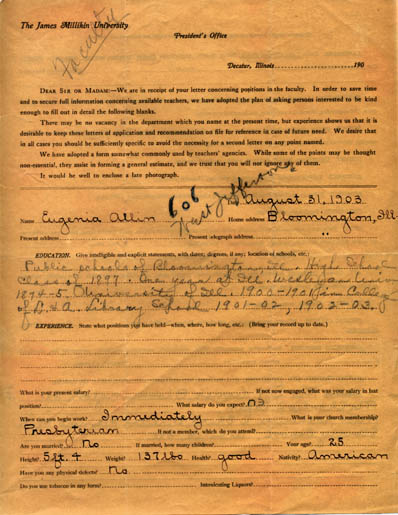 The James Millikin University
Faculty
President's Office
Decatur, Illinois, 190
DEAR SIR OR MADAM:—We are in receipt of your letter concerning positions in the faculty. In order to save time
and to secure full information concerning available teachers, we have adopted the plan of asking persons interested to be kind
enough to fill out in detail the following blanks.
There may be no vacancy in the department which you name at the present time, but experience shows us that it is
desirable to keep those letters of application and recommendation on file for reference in case of future need. We desire that
in all cases you should be sufficiently specific to avoid the necessity for a second letter on any point named.
We have adopted a form somewhat commonly used by teachers' agencies. While some of the points may be thought
non-essential, they assist in forming a general estimate, and we trust that you will not ignore any of them.
It would be well to enclose a late photograph.
606 West Jefferson
August 31, 1903
Name Eugenia Allin Home address Bloomington, Ill.
Present address Present telegraph address "
EDUCATION. Give intelligible and explicit statements, with dates; degrees, if any; location of schools, etc.
Public schools of Bloomington, Ill. High School
Class of 1897. One year at Ill. Wesleyan
1894-5. University of Ill. 1900-1901 in College
of L. & A. Library School 1901-02, 1902-03.
EXPERIENCE. State what positions you have held—when, where, how long, etc. (Bring your record up to date.)
What is your present salary? If not now engaged, what was your salary in last
position? What salary do you expect?
When can you begin work? Immediately What is your church membership?
Presbyterian If not a member, which do you attend?
Are you married? No If married, how many children? Your age? 25
Height? 5 ft. 4 Weight? 137 lbs Health? good Nativity? American
Have you any physical defects? No
Do you use tobacco in any form? Intoxicating Liquors?